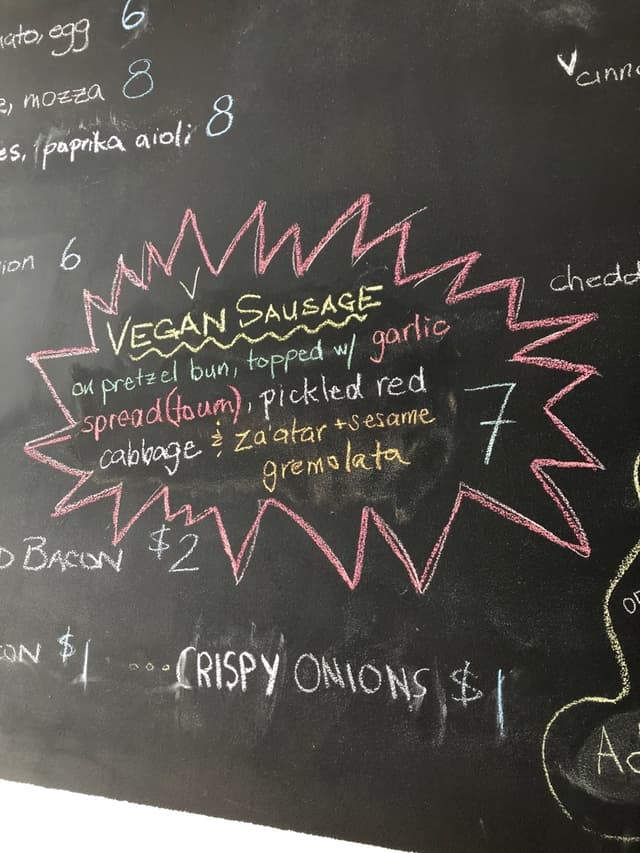 egg 6
mozza 8
paprika aioli 8
6
VEGAN SAUSAGE
on pretzel bun, topped w/ garlic
spread (toum), pickled red
cabbage & za'atar + sesame
gremolata
7
chedd
BACON $2
$1 ... CRISPY ONIONS $1